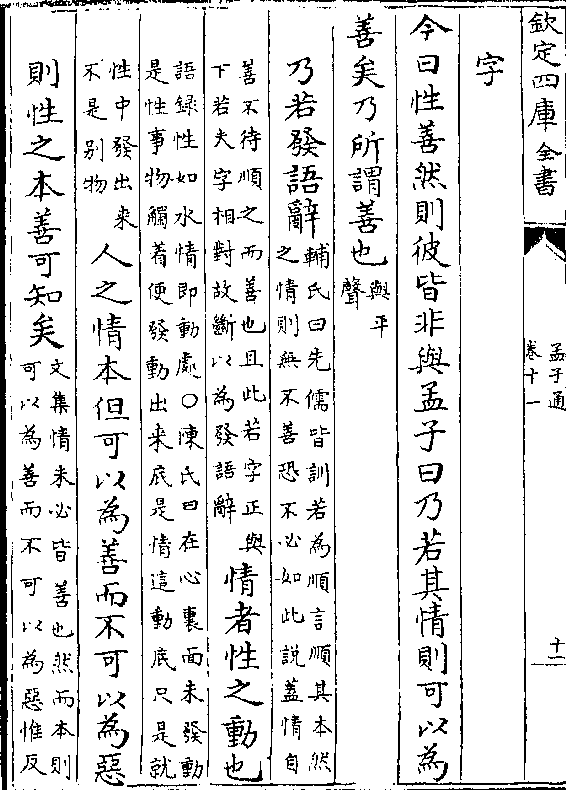 欽定四庫全書
孟子通
卷十一
十二
字
今曰性善然則彼皆非與孟子曰乃若其情則可以為
善矣乃所謂善也與平
聲
乃若發語辭輔氏曰先儒皆訓若為順言順其本然
之情則無不善恐不必如此說蓋情自
善不待順之而善也且此若字正與
下若夫字相對故斷以為發語辭情者性之動也
語錄性如水情即動處○陳氏曰在心裏面未發動
是性事物觸着便發動出來底是情這動底只是就
性中發出來
不是别物人之情本但可以為善而不可以為惡
則性之本善可知矣文集情未必皆善也然而本則
可以為善而不可以為惡惟反